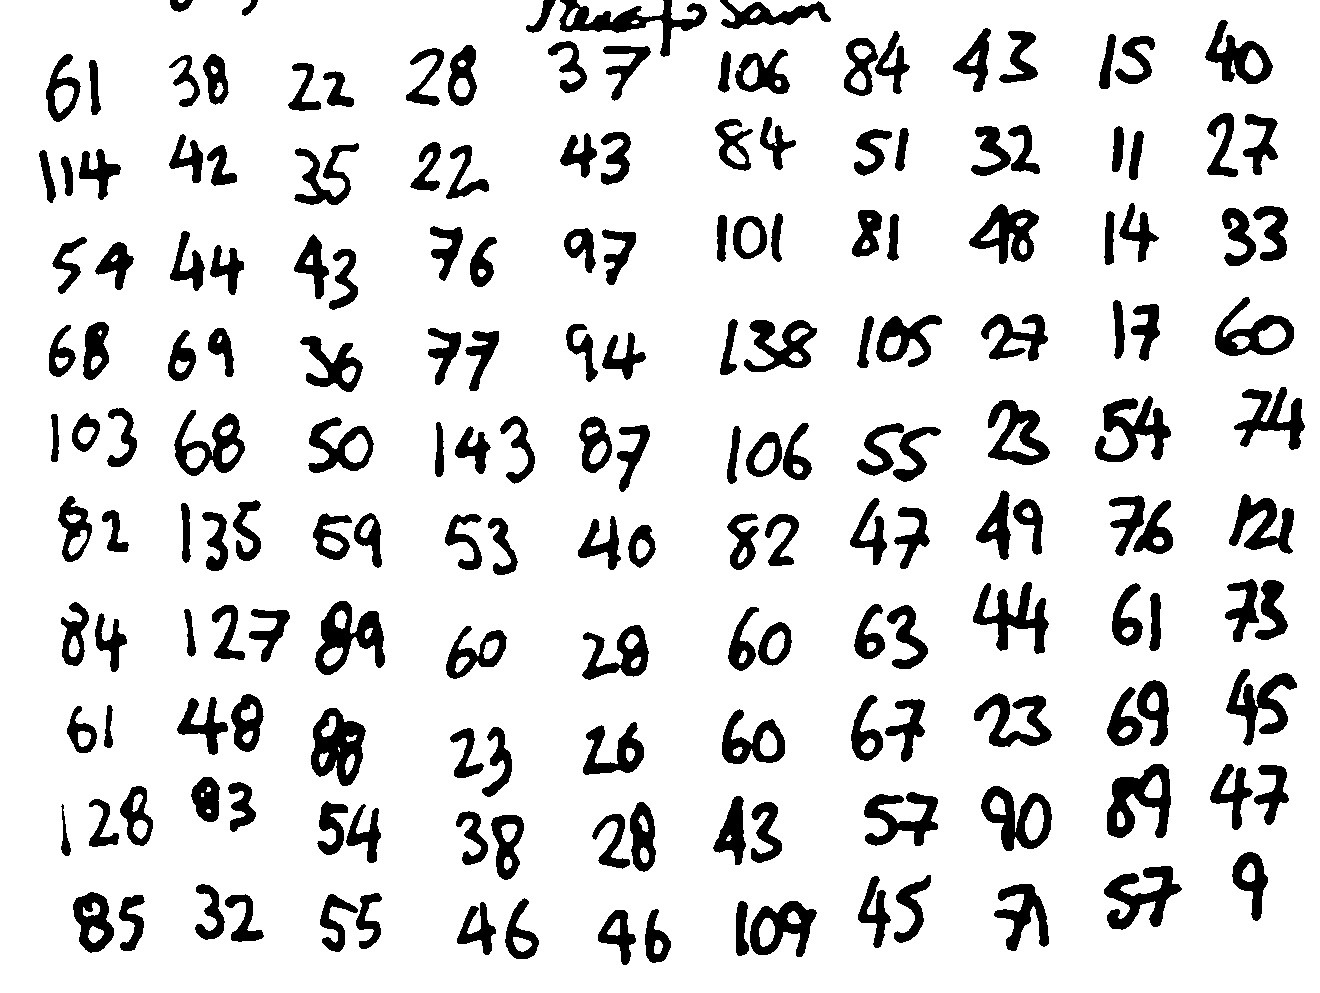 Sam
61 38 22 28 37 106 84 43 15 40
114 42 35 22 43 84 51 32 11 27
54 44 43 76 97 101 81 48 14 33
68 69 36 77 94 138 105 27 17 60
103 68 50 143 87 106 55 23 54 74
82 135 59 53 40 82 47 49 76 121
84 127 89 60 28 60 63 44 61 73
61 48 88 23 26 60 67 23 69 45
128 83 54 38 28 43 57 90 89 47
85 32 55 46 46 109 45 71 57 9